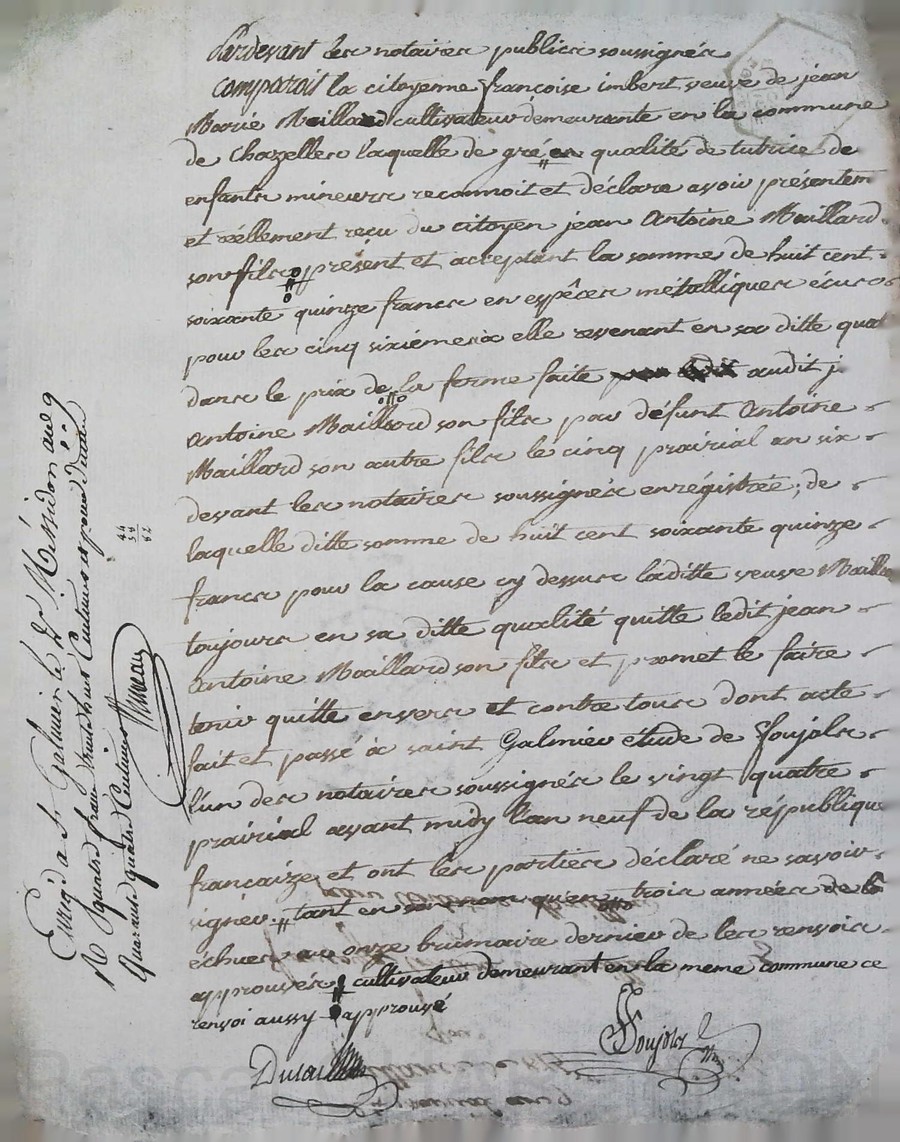 Pardevant les notaires publics soussignés
comparoit la citoyenne françoise imbert veuve de jean
Marie Maillard cultivateur demeurante en la commune
de Chazelles laquelle de gré en qualité de tutrice de
enfants mineurs reconnoit et déclare avoir présentem
et réellement reçu du citoyen jean Antoine Maillard
son fils présent et acceptant la somme de huit cent
soixante quinze francs en espêces métalliques écus
pour les cinq sixièmes à elle revenant en sa ditte qual
dans le prix de la ferme faite audit j
Antoine Maillard son fils par défunt Antoine
Maillard son autre fils le cinq prairial an six
devant les notaires soussignés enrégistrée; de
laquelle ditte somme de huit cent soixante quinze
francs pour la cause cy dessus laditte veuve Mailla
toujours en sa ditte qualité quitte ledit jean
Antoine Maillard son fils et promet le faire
tenir quitte envers et contre tous dont acte
fait et passé à saint Galmier étude de Soujols
l'un des notaires soussignés le vingt quatre
prairial avant midy l'an neuf de la république
francaize et ont les parties déclaré ne savoir
signer. tant en son nom qu'en trois années de la
échues au onze brumaire dernier de les renvois
approuvés cultivateur demeurant en la meme commune ce
renvoi aussy approuvé
Soujols
Enrég. à St Galmier le 2 Messidor an 9
R quatre francs trente huit Centimes et pour
Quarante quatre Centimes
44
38
82